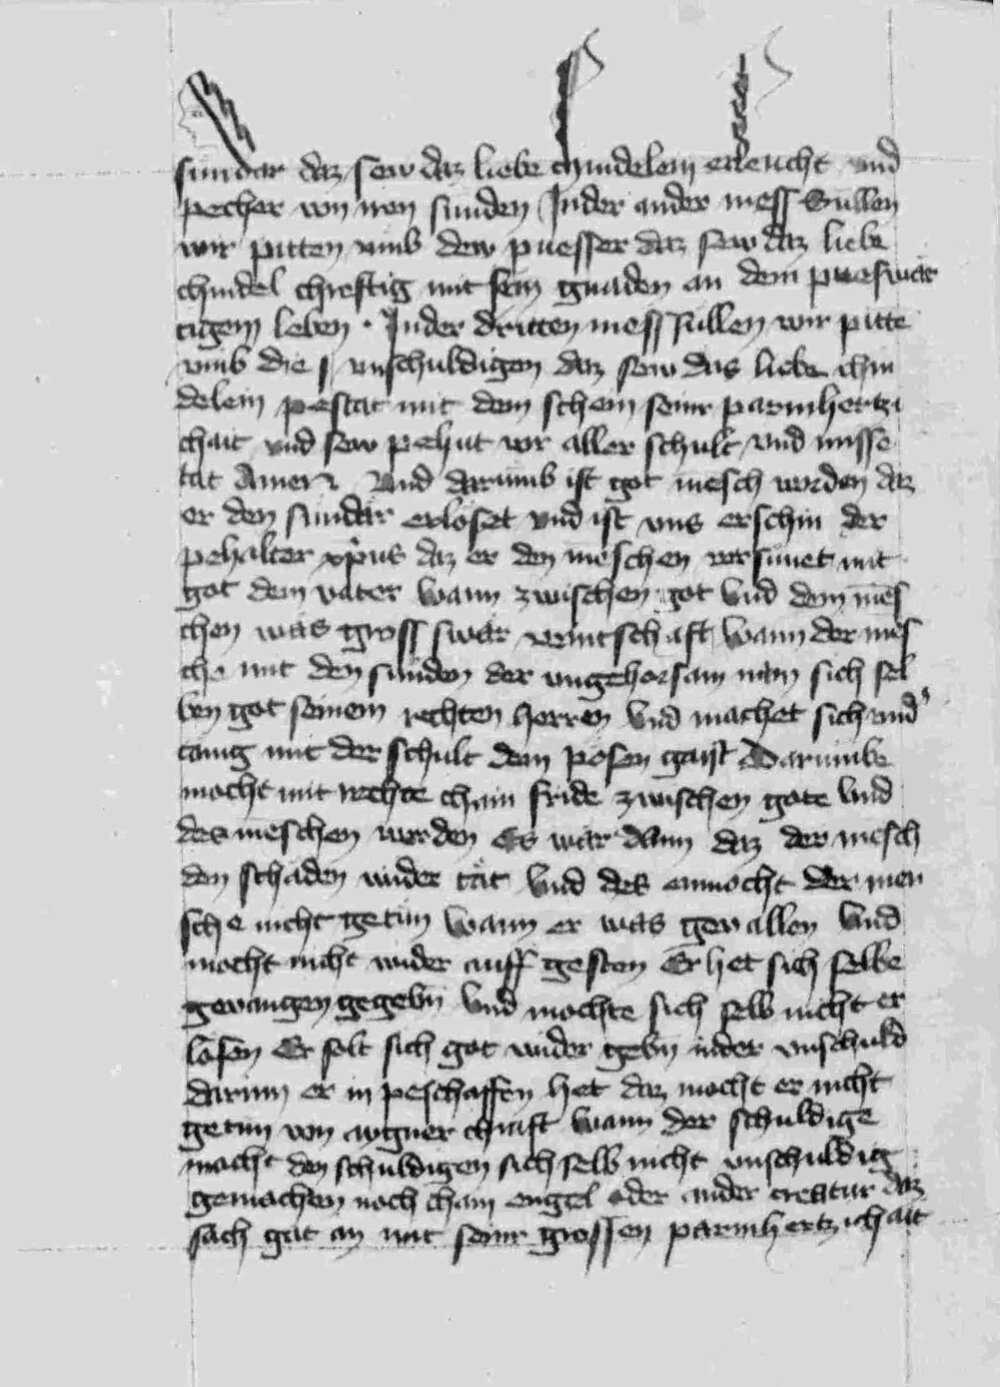 sundar daz sew daz liebe chindelein erleucht und
pecher von iren sunden In der ander mess Sullen
wir pitten umb dew puesser daz sew daz liebe
chindel chreftig mit sein gnaden an dem pueswär
tigem leben · In der dritten mess sullen wir pitte
umb die unschuldigen daz sew das liebe chin
delein pestät mit dem schein seinr parmhertzi
chait und sew pehut vor aller schult und misse
tat Amen Und darumb ist got mesch worden daz
er den sundär erloset und ist uns erschin der
pehalter xpus daz er den meschen versunet mit
got dem vater Wann zwischen got und dem mēs
chen was gross swär veintschaft Wann der mēs
che mit den sunden der ungehorsam nam sich sel
ben got seinem rechten herren Und machet sich und'
tanig mit der schult dem posen gaist Darumbe
mocht mit rechte chain fride zwischen gote Und
des meschen werden Es wär dann daz der mesch
den schaden wider tät Und des enmocht der men
sche nicht getun Wann er was gevallen Und
mocht nicht wider auff gesten Er het sich selbe
gevangen gegebn Und mochte sich selb nicht er
losen Er solt sich got wider gebn in der unschuld
darinn er in peschaffen het daz mocht er nicht
getun von aygner chraft Wann der schuldige
macht den schuldigen sich selb nicht unschuldig
gemachen noch chain engel oder ander creatur daz
sach got an mit seinr grossen parmhertzichait